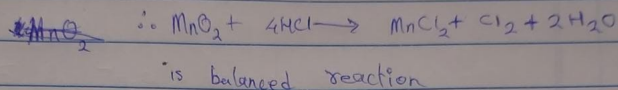 MnO₂ ∴ MnO₂ + 4HCl → MnCl₂ + Cl₂ + 2H₂O
is balanced reaction